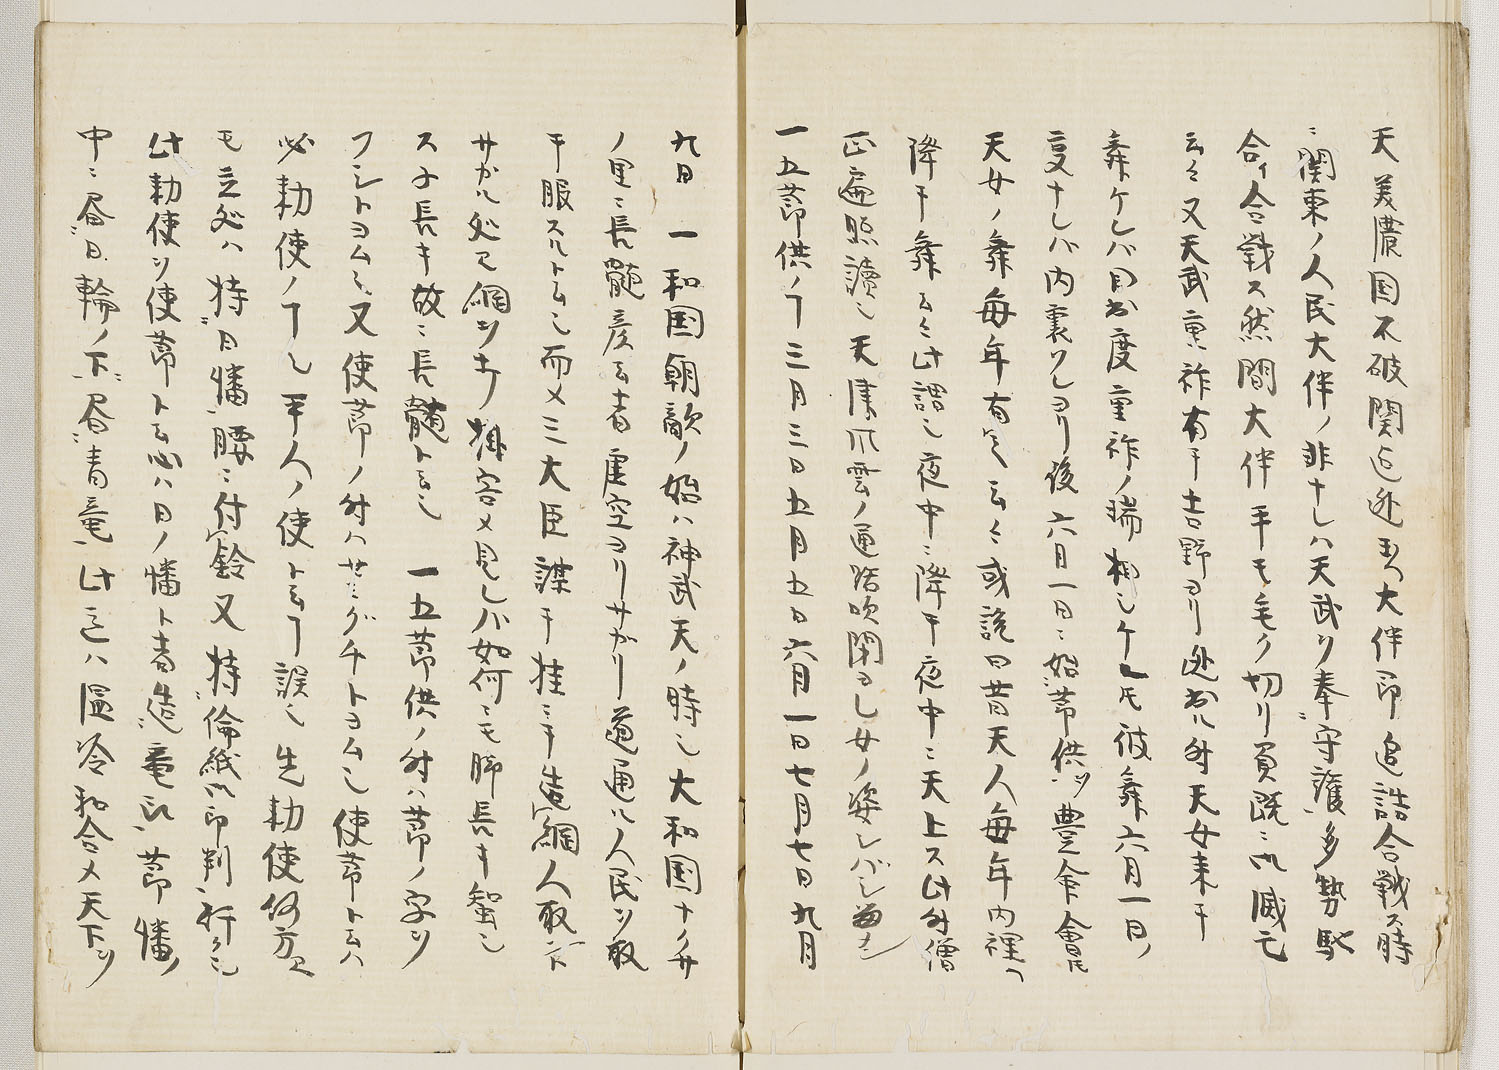 天美濃国不破関迄逃玉大伴即追詰合戦ス時
ニ関東ノ人民大伴ノ非ナレハ天武ヲ奉守護多勢馳
合イ合戦ス然間大伴干モ毛ク切リ負既ニ以滅亡
云々又天武重祚有テ吉野ヨリ逃出ル時天女来テ
舞ケレバ目出度重祚ノ瑞相也ケレ𪜈彼舞六月一日ノ
夏ナレバ内裏ヲレヨリ後六月一日ニ始節供ヅ豊余會𪜈
天女ノ舞毎年有之云々或説曰昔天人毎年内裡ヘ
降テ舞云々此謂也夜中ニ降テ夜中ニ天上ス此時僧
正遍照讀也天津爪雲ノ通路吹閉ヨ乙女ノ姿シバシ留ン
一五節供ノ丁三月三日五月五日六月一日七月七日九月
九日 一和国朝敵ノ始ハ神武天ノ時也大和国ナクサ
ノ里ニ長髄彦云者虚空ヨリサガリ道通ル人民ヲ取
テ服スルト云也而メ三大臣謀テ桂ニテ造綱人取下
サガル処ヲ綱ヲナケ掛容メ見レバ如何ニモ脚長キ蜘也
スネ長キ故ニ長髄ト云也 一五節供ノ時ハ節ノ字ヲ
フシトヨム也又使節ノ時ハセミグチトヨム也使節ト云ハ
必勅使ノ丁也平人ノ使ト云丁誤也先勅使何方ヘ
モ立処ハ持日幡腰ニ付鈴又持倫紙以印判行クニ
此勅使ヲ使節ト云心ハ日ノ幡ト者造竜以節幡ノ
中ニ昼日輪ノ下昼青竜此意ハ温冷和合メ天下ヲ